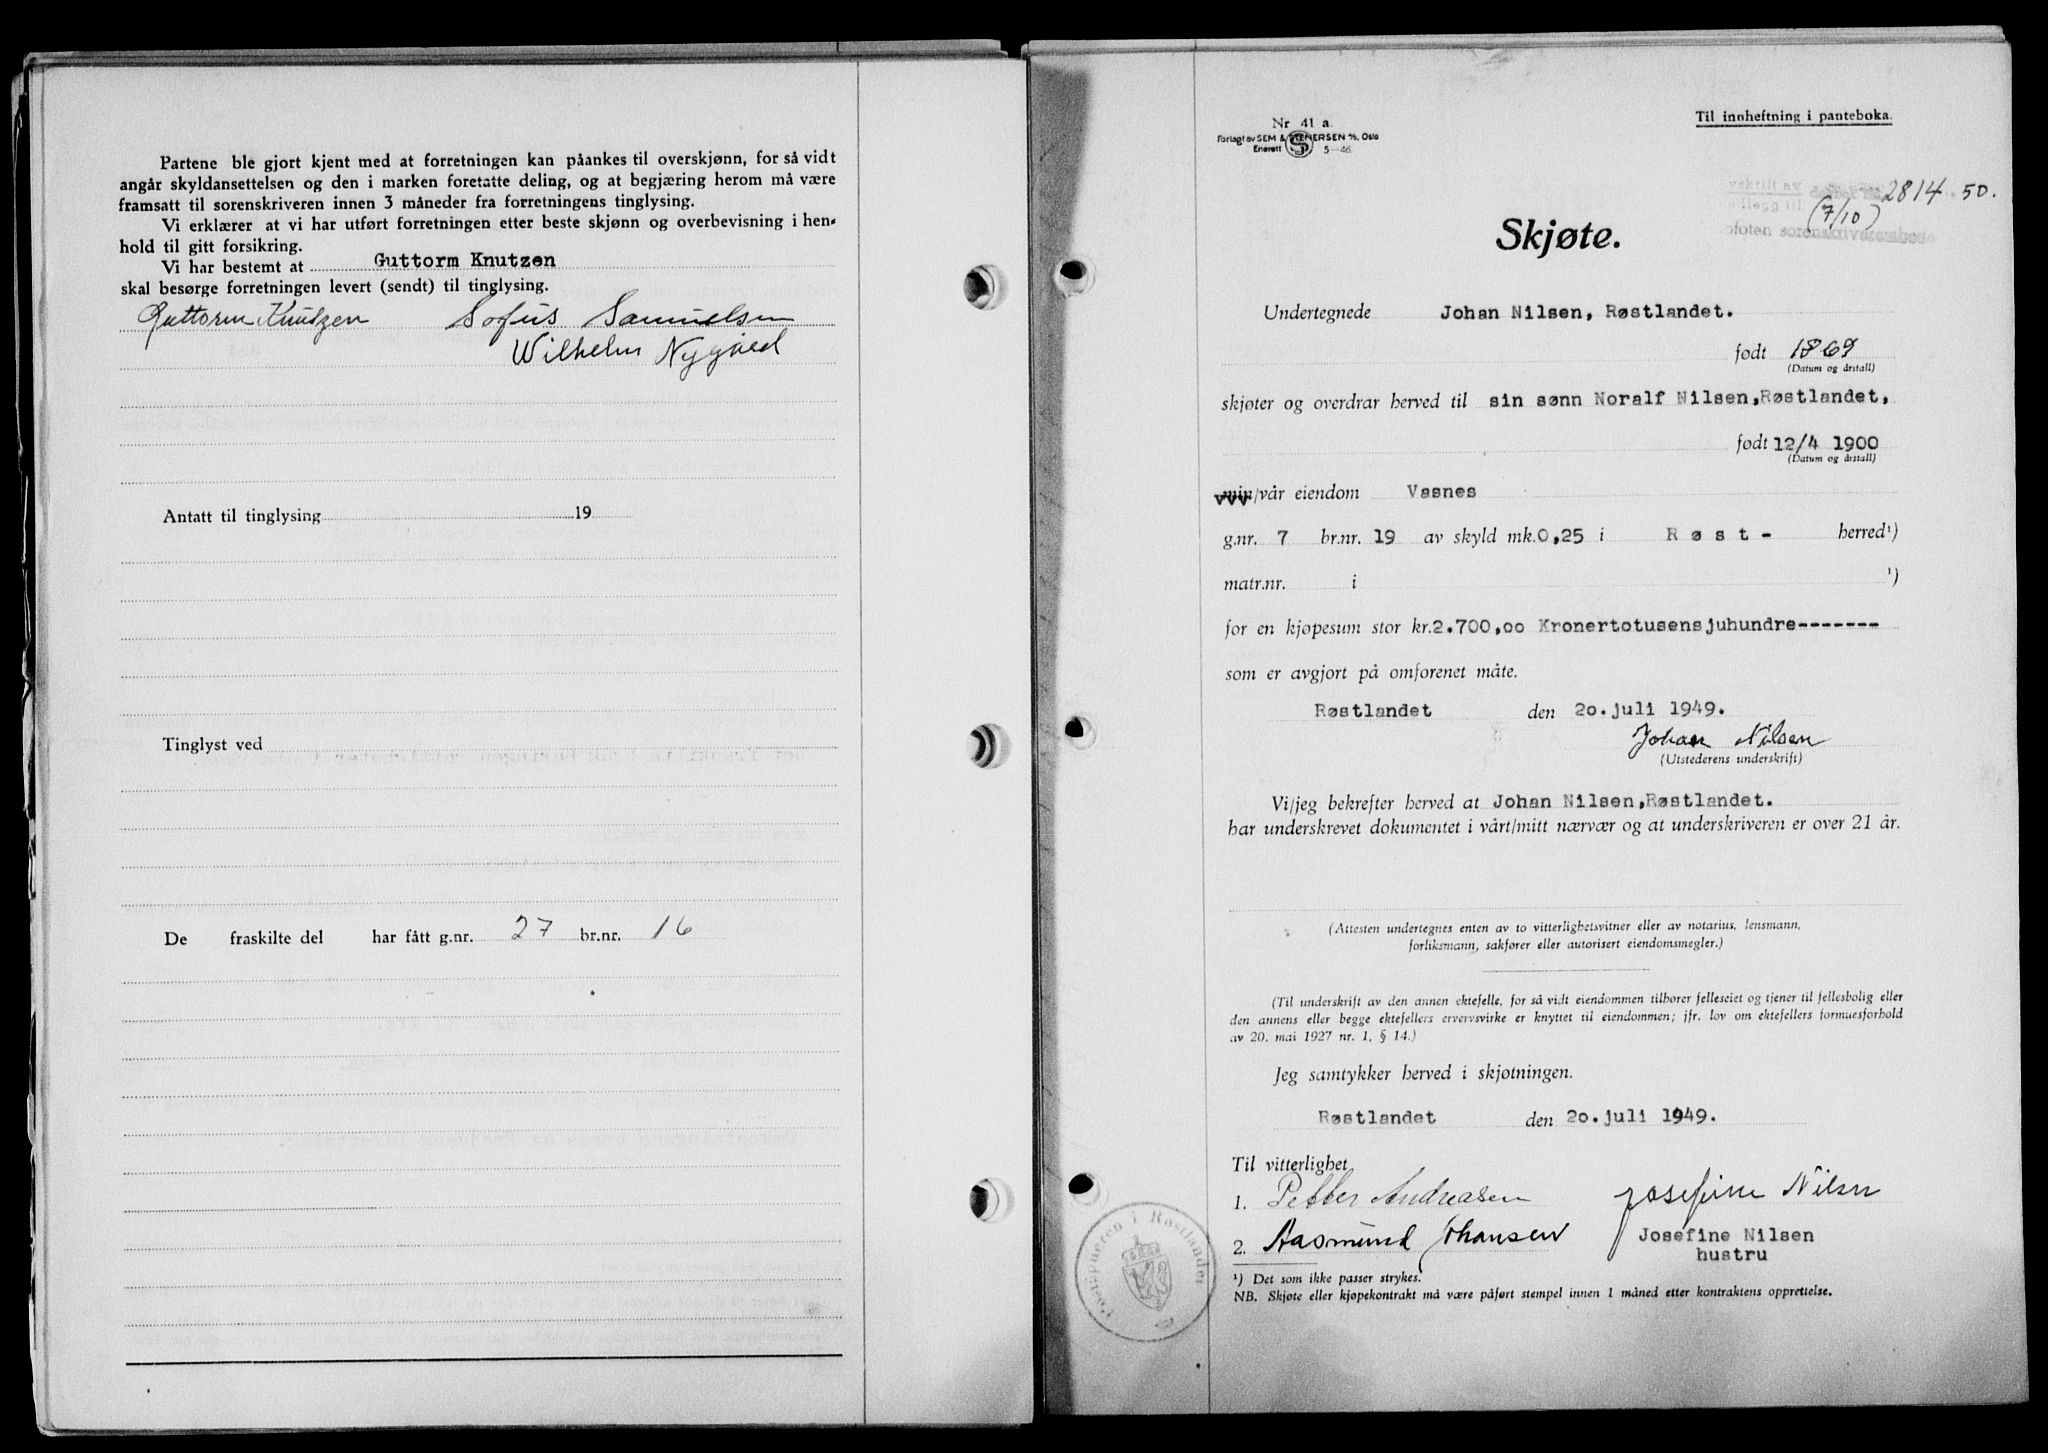 Partene ble gjort kjent med at forretningen kan påankes til overskjønn, for så vidt
angår skyldansettelsen og den i marken foretatte deling, og at begjæring herom må være
framsatt til sorenskriveren innen 3 måneder fra forretningens tinglysing.
Vi erklærer at vi har utført forretningen etter beste skjønn og overbevisning i hen-
hold til gitt forsikring.
Vi har bestemt at Guttorm Knutzen
skal besørge forretningen levert (sendt) til tinglysing.
Guttorm Knutzen Sofus Samuelsen
Wilhelm Nygård
Antatt til tinglysing 19
Tinglyst ved
De fraskilte del har fått g.nr. 27 br.nr. 16
Til innheftning i panteboka.
Nr. 41 a.
Forlagt av SEM & STENERSEN A/S, Oslo
Enerett S 5-46.
2814 50.
(7/10)
Skjøte.
Undertegnede Johan Nilsen, Røstlandet.
født 1869
(Datum og årstall)
skjøter og overdrar herved til sin sønn Noralf Nilsen,Røstlandet,
født 12/4 1900
(Datum og årstall)
min/vår eiendom Vasnes
g.nr. 7 br.nr. 19 av skyld mk.0,25 i Røst- herred¹)
matr.nr. i ¹)
for en kjøpesum stor kr.2.700,00 Kronertotusensjuhundre-------
som er avgjort på omforenet måte.
Røstlandet den 20.juli 1949.
Johan Nilsen
(Utstederens underskrift)
Vi/jeg bekrefter herved at Johan Nilsen,Røstlandet.
har underskrevet dokumentet i vårt/mitt nærvær og at underskriveren er over 21 år.
(Attesten undertegnes enten av to vitterlighetsvitner eller av notarius, lensmann,
forliksmann, sakfører eller autorisert eiendomsmegler.)
(Til underskrift av den annen ektefelle, for så vidt eiendommen tilhører felleseiet og tjener til fellesbolig eller
den annens eller begge ektefellers ervervsvirke er knyttet til eiendommen; jfr. lov om ektefellers formuesforhold
av 20. mai 1927 nr. 1, § 14.)
Jeg samtykker herved i skjøtningen.
Røstlandet den 20.juli 1949.
Til vitterlighet
1. Petter Andreasen Josefine Nilsen
2. Aasmund Johansen Josefine Nilsen
hustru
¹) Det som ikke passer strykes.
NB. Skjøte eller kjøpekontrakt må være påført stempel innen 1 måned etter kontraktens opprettelse.